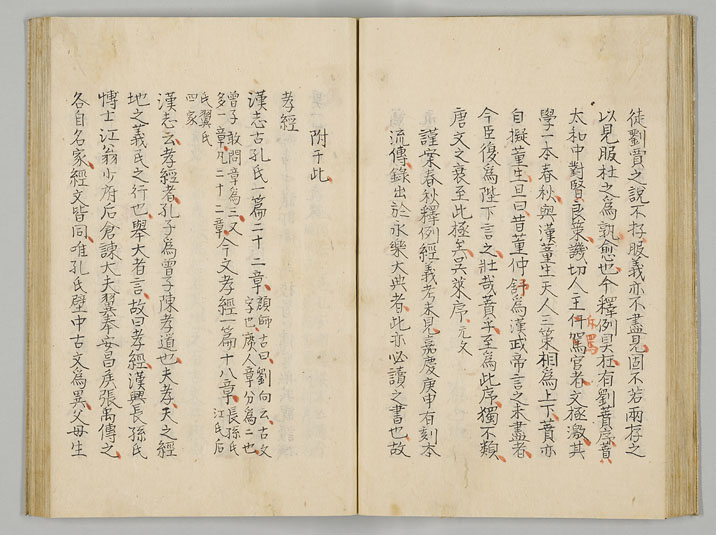 徒劉賈之說不存服義亦不盡見固不若兩存之
以見服杜之為孰愈也今釋例具在有劉蕡序蕡
太和中對賢良策譏切人主斥罵宦者文極激其
學一本春秋與漢董生天人三策相為上下蕡亦
自擬董生且曰昔董仲舒為漢武帝言之未盡者
今臣復為陛下言之壯哉蕡乎至為此序獨不類
唐文之衰至此極矣吳萊序元文
謹案春秋釋例經義考未見嘉慶庚申有刻本
流傳錄出於永樂大典者此亦必讀之書也故
附于此
孝經
漢志古孔氏一篇二十二章顏師古曰劉向云古文字也庶人章分為二也
曾子敢問章為三又多一章凡二十二章今文孝經一篇十八章長孫氏江氏后
氏翼氏四家
漢志云孝經者孔子為曾子陳孝道也夫孝天之經
地之義民之行也舉大者言故曰孝經漢興長孫氏
博士江翁少府后倉諫大夫翼奉安昌侯張禹傳之
各自名家經文皆同唯孔氏壁中古文為異父母生